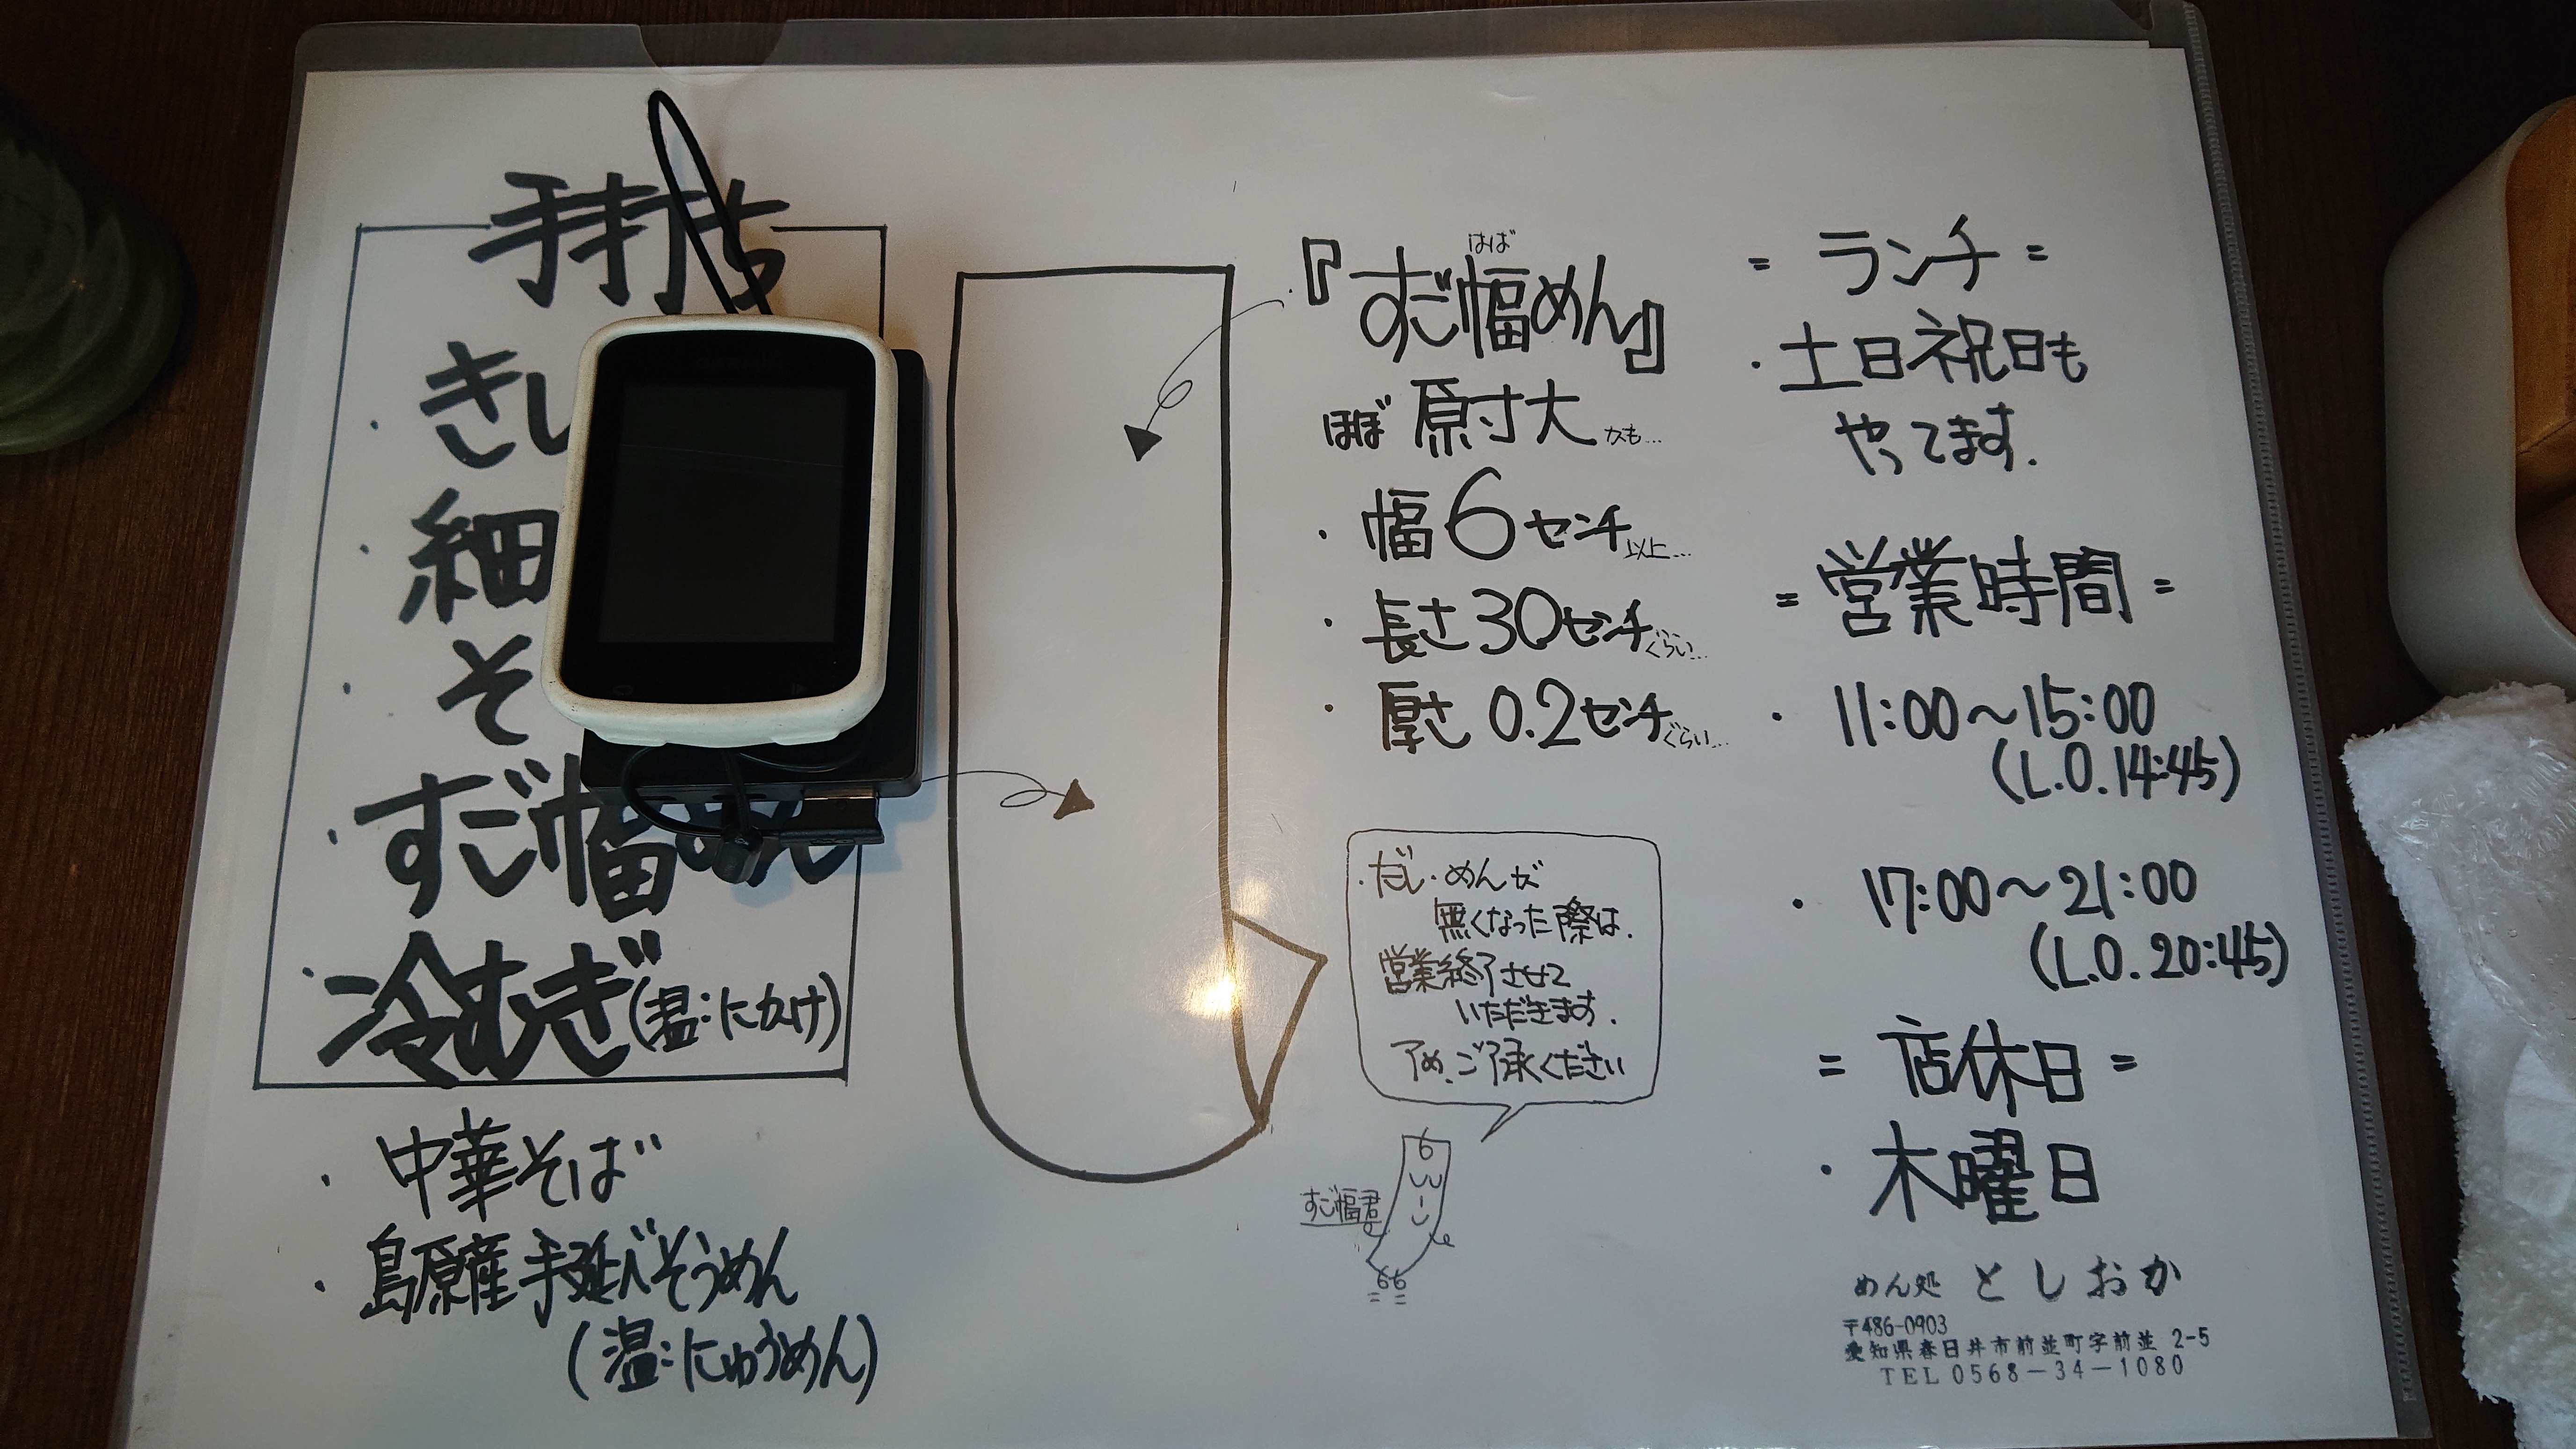 手打ち
・きし
・細
・そ
・すご幅めん
・冷むぎ(温:にかけ)
・中華そば
・島原産手延べそうめん
(温:にゅうめん)
はば
『すご幅めん』
ほぼ 原寸大 かも…
・幅6センチ以上…
・長さ30センチぐらい…
・厚さ 0.2センチぐらい…
・だし・めんが
無くなった際は、
営業終了させて
いただきます.
予め、ご了承ください
すご幅君
= ランチ =
・土日祝日も
やってます.
= 営業時間 =
・11:00~15:00
(L.O.14:45)
・17:00~21:00
(L.O.20:45)
= 店休日 =
・木曜日
めん処 としおか
〒486-0903
愛知県春日井市前並町字前並 2-5
TEL 0568-34-1080